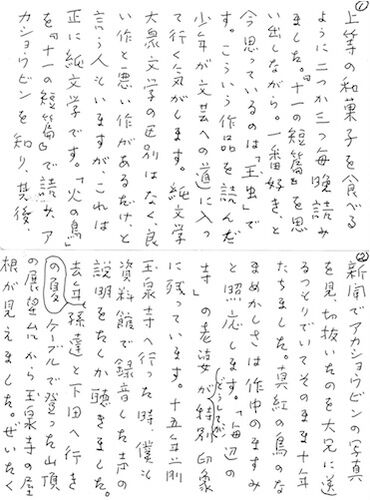 ①
上等の和菓子を食べる
ように二つか三つ毎晩読み
ました。『十一の短篇』を思
い出しながら。一番好き、と
今思っているのは「玉虫」で
す。こういう作品を読んだ
少年が文芸への道に入っ
て行く気がします。純文学
大衆文学の区別はなく、良
い作と悪い作があるだけ、と
言う人もいますが、これは
正に純文学です。「火の鳥」
を『十一の短篇』で読み、ア
カショウビンを知り、其後、
②
新聞でアカショウビンの写真
を見切抜いたのを大兄に送
るつもりでいてそのまま十年
たちました。真紅の鳥のな
まめかしさは作中のますみ
と照応します。「海辺の
寺」の老婆がどうしてか特別印象
に残っています。十五年前
玉泉寺へ行った時、僕も
資料館で録音した声の
説明をたしか聴きました。
去年の夏孫達と下田へ行き
ケーブルで登った山頂
の展望台から玉泉寺の屋
根が見えました。ぜいたく